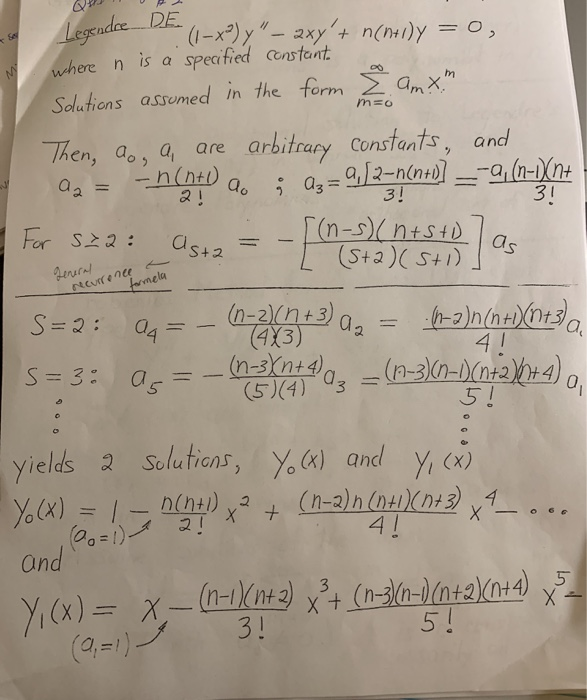 Legendre DE (1-x²)y″ - 2xy′ + n(n+1)y = 0,
where n is a specified constant.
Solutions assumed in the form ∑_{m=0}^{∞} a_m x^m
Then, a₀, a₁ are arbitrary constants, and
a₂ = -n(n+1)/2! a₀ ; a₃ = a₁[2-n(n+1)]/3! = -a₁(n-1)(n+/3!
For S≥2: a_{s+2} = -[(n-s)(n+s+1)/(s+2)(s+1)] a_s
general recurrence formula ←
S=2: a₄ = - (n-2)(n+3)/(4)(3) a₂ = (n-2)n(n+1)(n+3)/4! a
S=3: a₅ = - (n-3)(n+4)/(5)(4) a₃ = (n-3)(n-1)(n+2)(n+4)/5! a₁
yields 2 solutions, y₀(x) and y₁(x)
y₀(x) = 1 - n(n+1)/2! x² + (n-2)n(n+1)(n+3)/4! x⁴ - ...
(a₀=1)
and
y₁(x) = x - (n-1)(n+2)/3! x³ + (n-3)(n-1)(n+2)(n+4)/5! x⁵ -
(a₁=1)